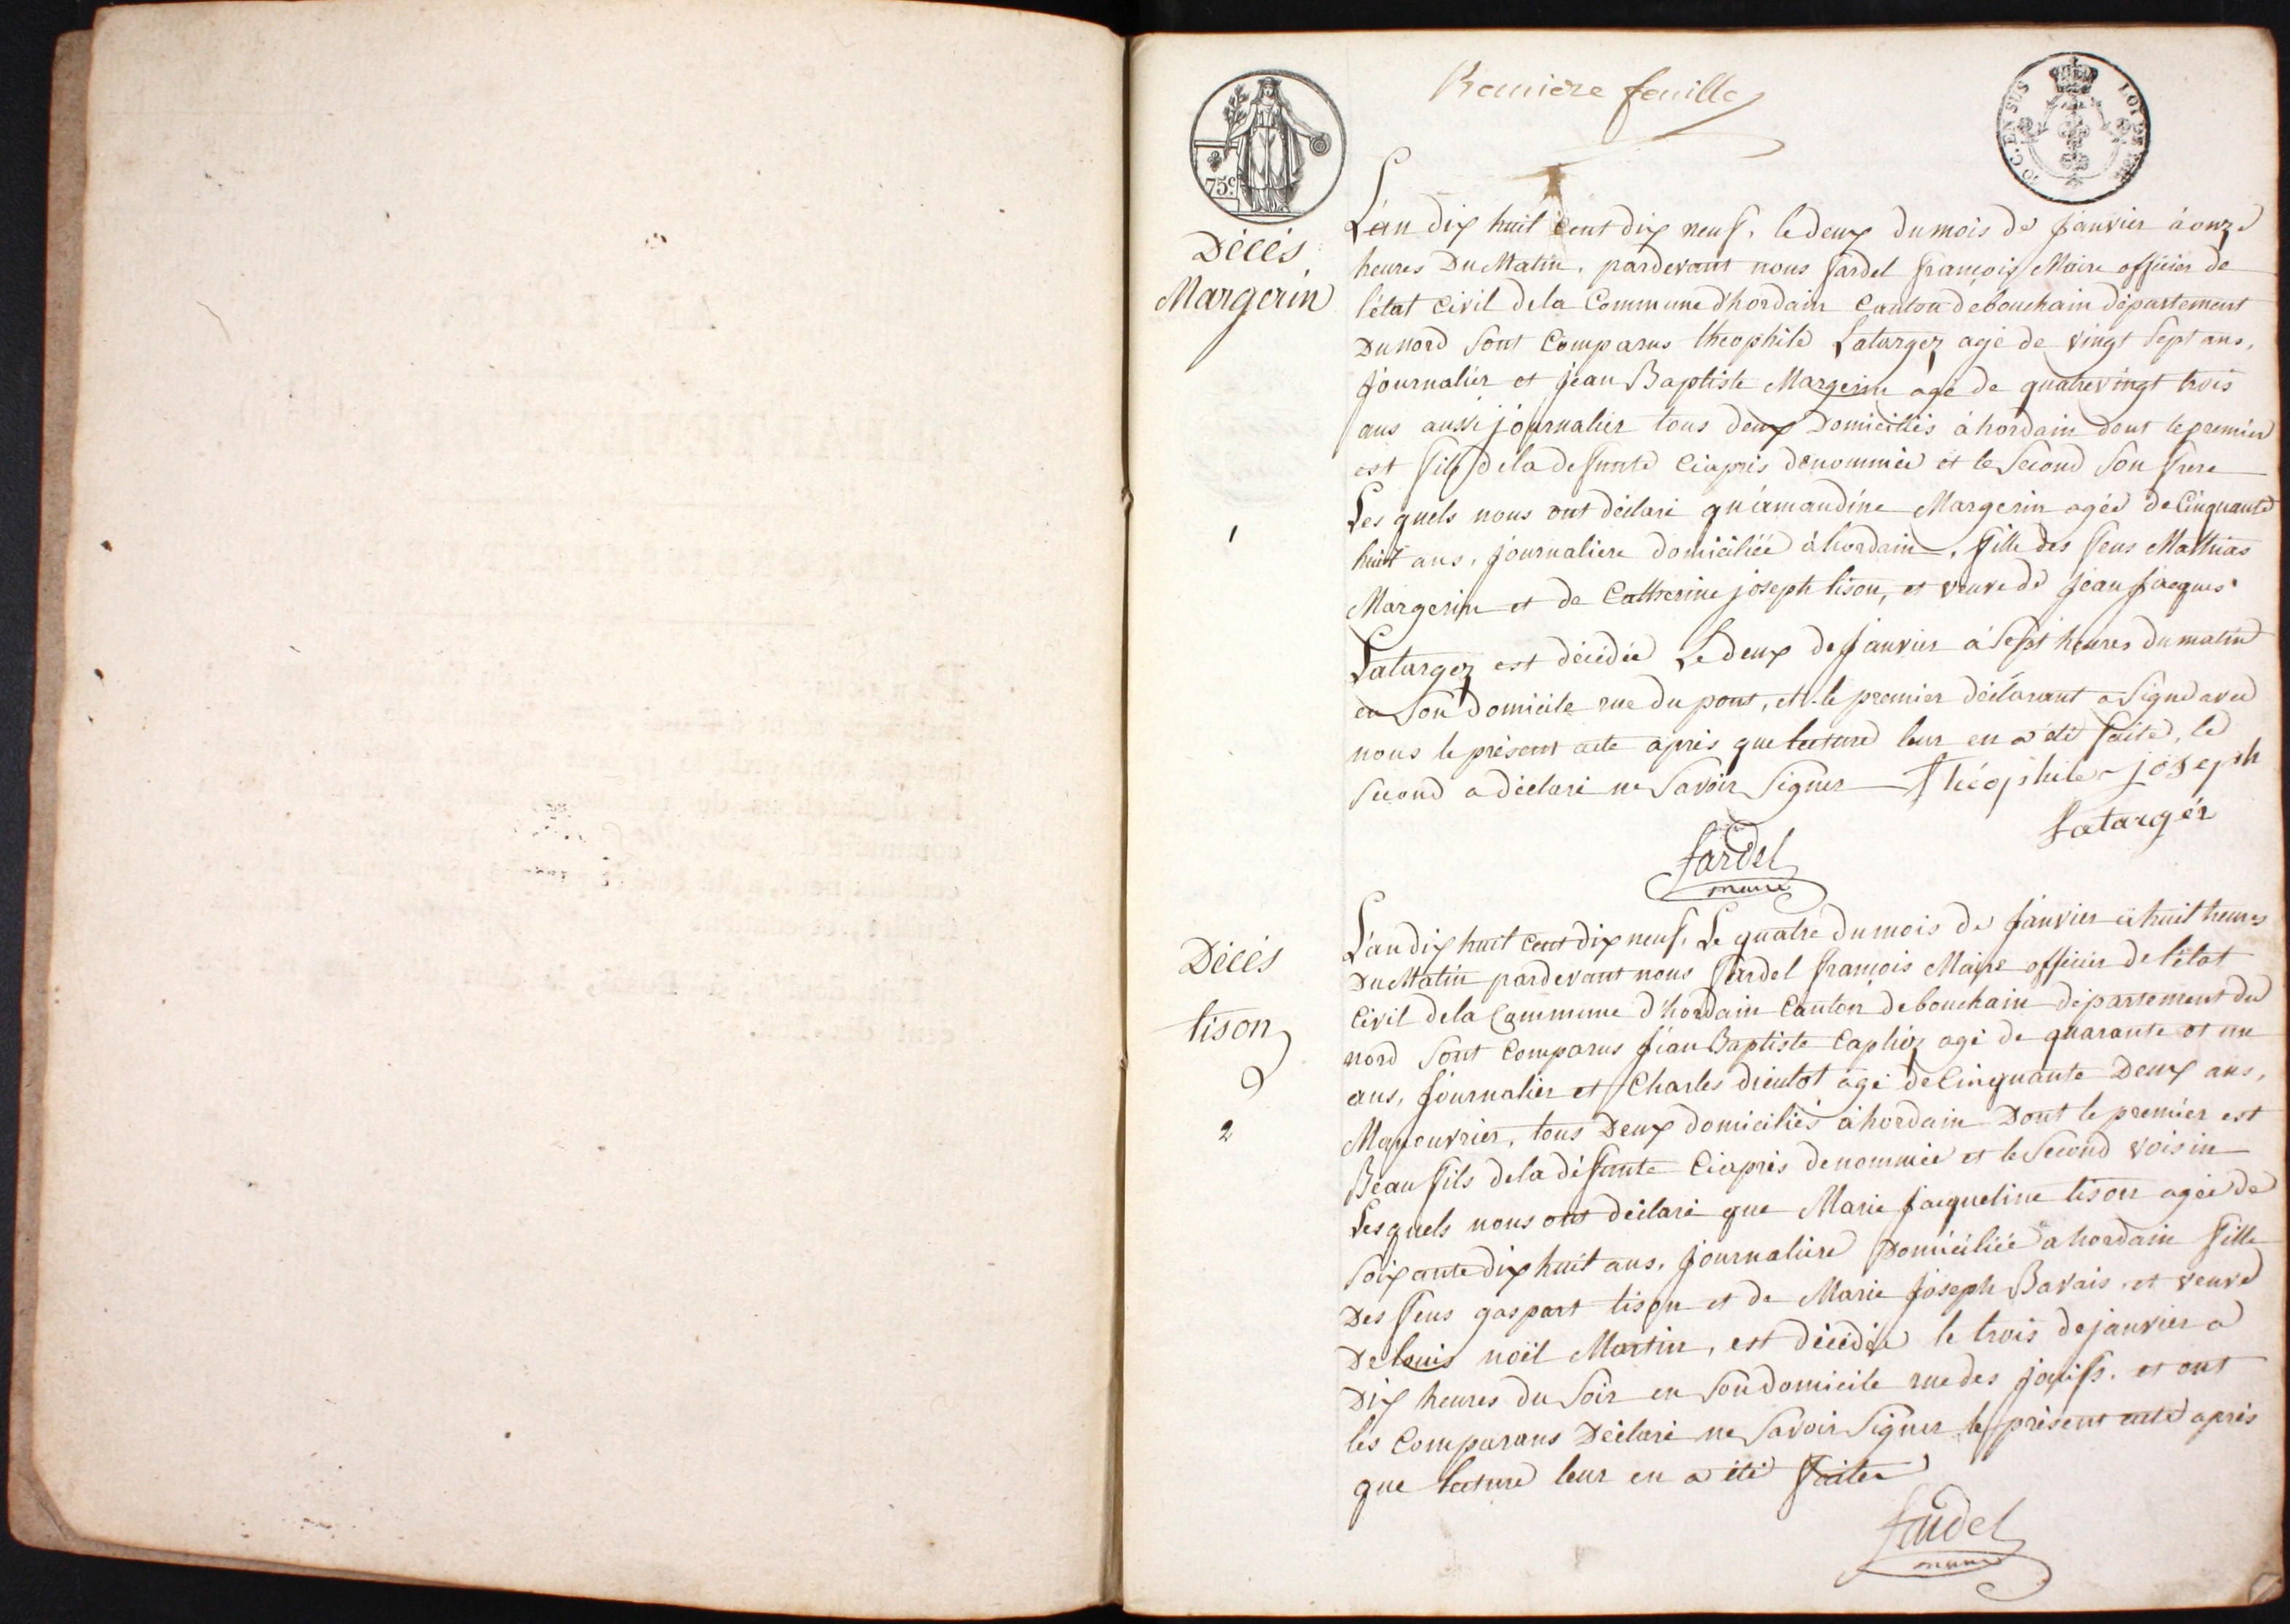 Première feuille
75c
10 C. EN SUS
LOI DE
Décès
Margerin
1
L'an dix huit cent dix neuf, le deux du mois de janvier à onze
heures Du Matin, pardevant nous fardel françois Maire officier de
l'état Civil dela Commune d'hordain Canton debouchain département
Du nord Sont Comparus théophile Latargez agé de vingt Sept ans,
journalier et jean Baptiste Margerin agé de quatrevingt trois
ans aussi journalier tous deux Domiciliés à hordain dont le premier
est fils dela defunte Ciaprès dénommée et le Second Son frere
Lesquels nous ont déclaré qu'amandine Margerin agée de Cinquante
huit ans, journaliere domiciliée à hordain, fille des feus Mathias
Margerin et de Catherine joseph tison, et veuve de jean jacques
Latargez est décédée Le deux de janvier à Sept heures du matin
en Son domicile rue du pont, et le premier déclarant a Signé avec
nous le présent acte après que lecture leur en a été faite, le
Second a déclaré ne Savoir Signer Théophile joseph
Latargéz
fardel
maire
Décès
tison
2
L'an dix huit cent dix neuf, Le quatre du mois de janvier à huit heures
Du Matin pardevant nous fardel françois Maire officier de l'état
Civil dela Commune d'hordain Canton debouchain département du
nord Sont Comparus jean Baptiste Capliez agé de quarante et un
ans, journalier et Charles drientot agé de Cinquante Deux ans,
Manouvrier, tous Deux domiciliés à hordain Dont le premier est
Beau fils dela défunte Ciaprès denommée et le Second voisin
Lesquels nous ont déclaré que Marie jacqueline tison agée de
Soixante dix huit ans, journaliere Domiciliée a hordain fille
Des feus gaspart tison et de Marie joseph Bavais, et veuve
De louis noël Martin, est décédée le trois de janvier a
Dix heures du Soir en Son domicile rue des et ont
les Comparans Déclaré ne Savoir Signer le présent acte après
que lecture leur en a été faite
fardel
maire